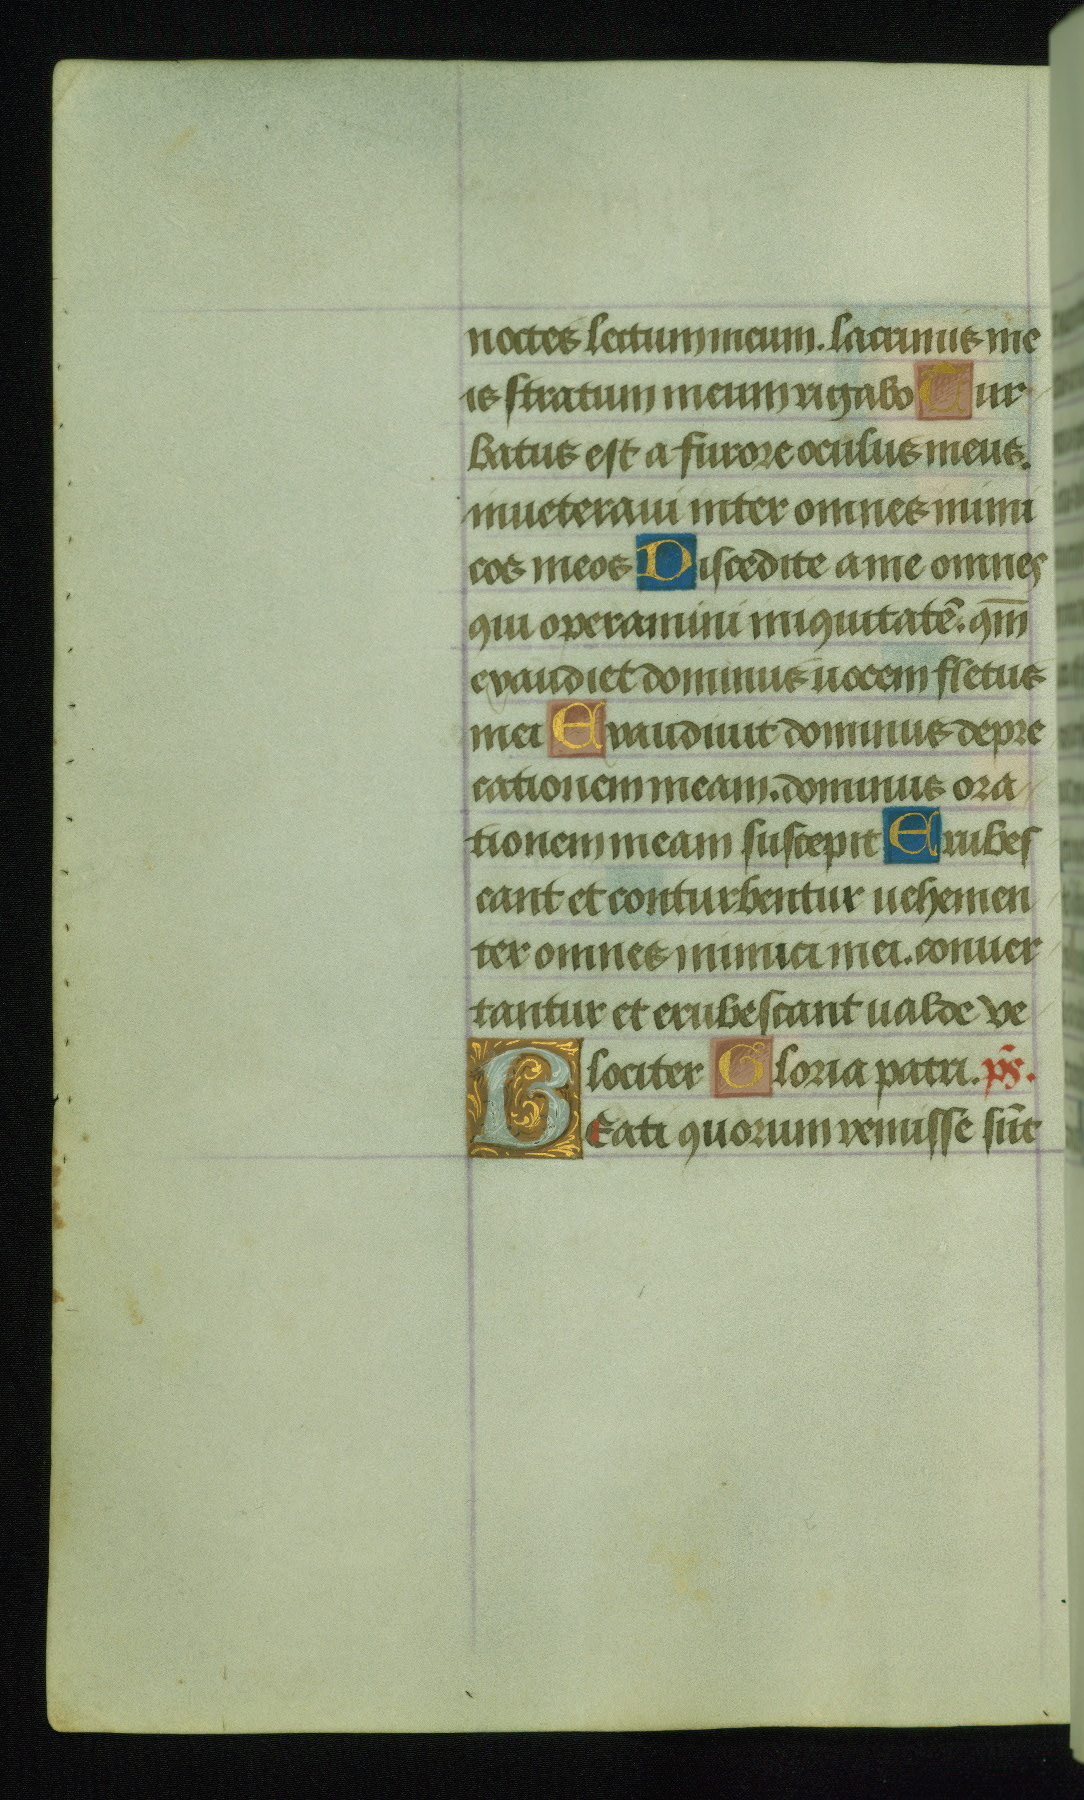 noctes lectum meum. lacrimis me
is stratum meum rigabo Tur
batus est a furore oculus meus.
inueteraui inter omnes inimi
cos meos Discedite a me omnes
qui operamini iniquitatē. qm̄
exaudiet dominus uocem fletus
mei Exaudiuit dominus depre
cationem meam. dominus ora
tionem meam suscepit Erubes
cant et conturbentur uehemen
ter omnes inimici mei. conuer
tantur et erubescant ualde ve
lociter Gloria patri. ps̄.
Beati quorum remisse sūt